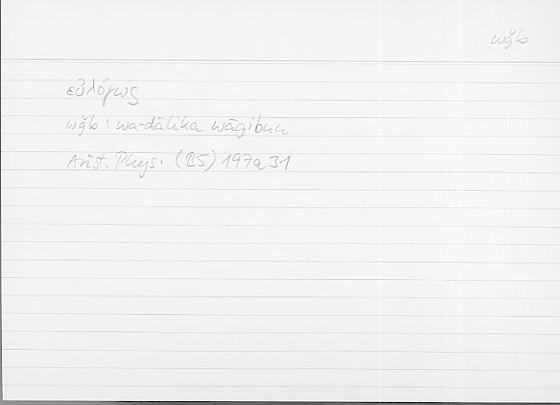 wǧb
εὐλόγως
wǧb : wa-ḏālika wāǧibun
Arist. Phys. (B5) 197a31